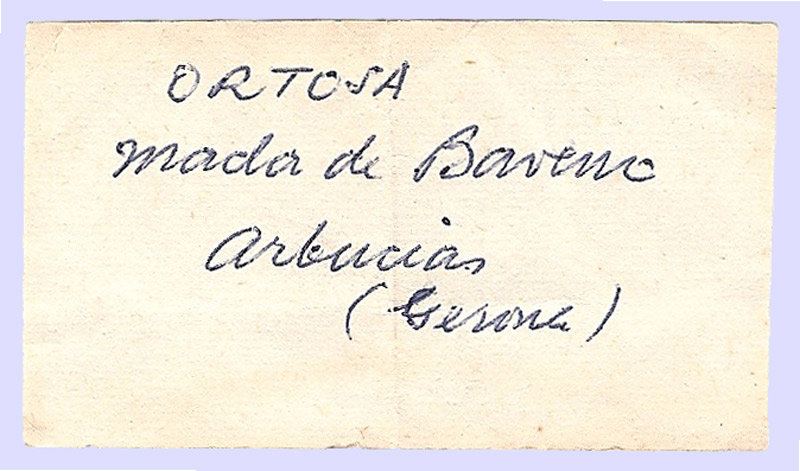 ORTOSA
Mada de Baveno
Arbucias
(Gerona)